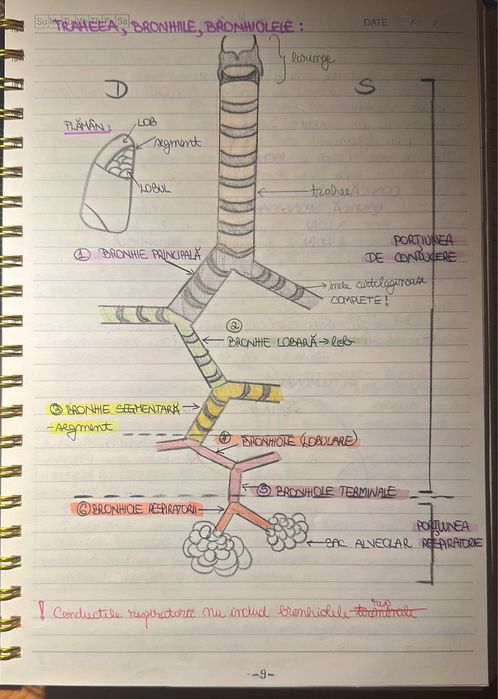 Su M T W T F Sa
DATE / /
TRAHEEA, BRONHIILE, BRONHIOLELE :
laringe
D
S
PLĂMÂN:
LOB
segment
LOBUL
trahee
① BRONHIE PRINCIPALĂ
PORȚIUNEA
DE CONDUCERE
inele cartilaginoase
COMPLETE!
②
BRONHIE LOBARĂ → lob
③ BRONHIE SEGMENTARĂ
-segment
④ BRONHIOLE (LOBULARE)
⑤ BRONHIOLE TERMINALE
⑥ BRONHIOLE RESPIRATORII
PORȚIUNEA
RESPIRATORIE
SAC ALVEOLAR
resp
! Conductele respiratorii nu includ bronhiolele terminale
-9-